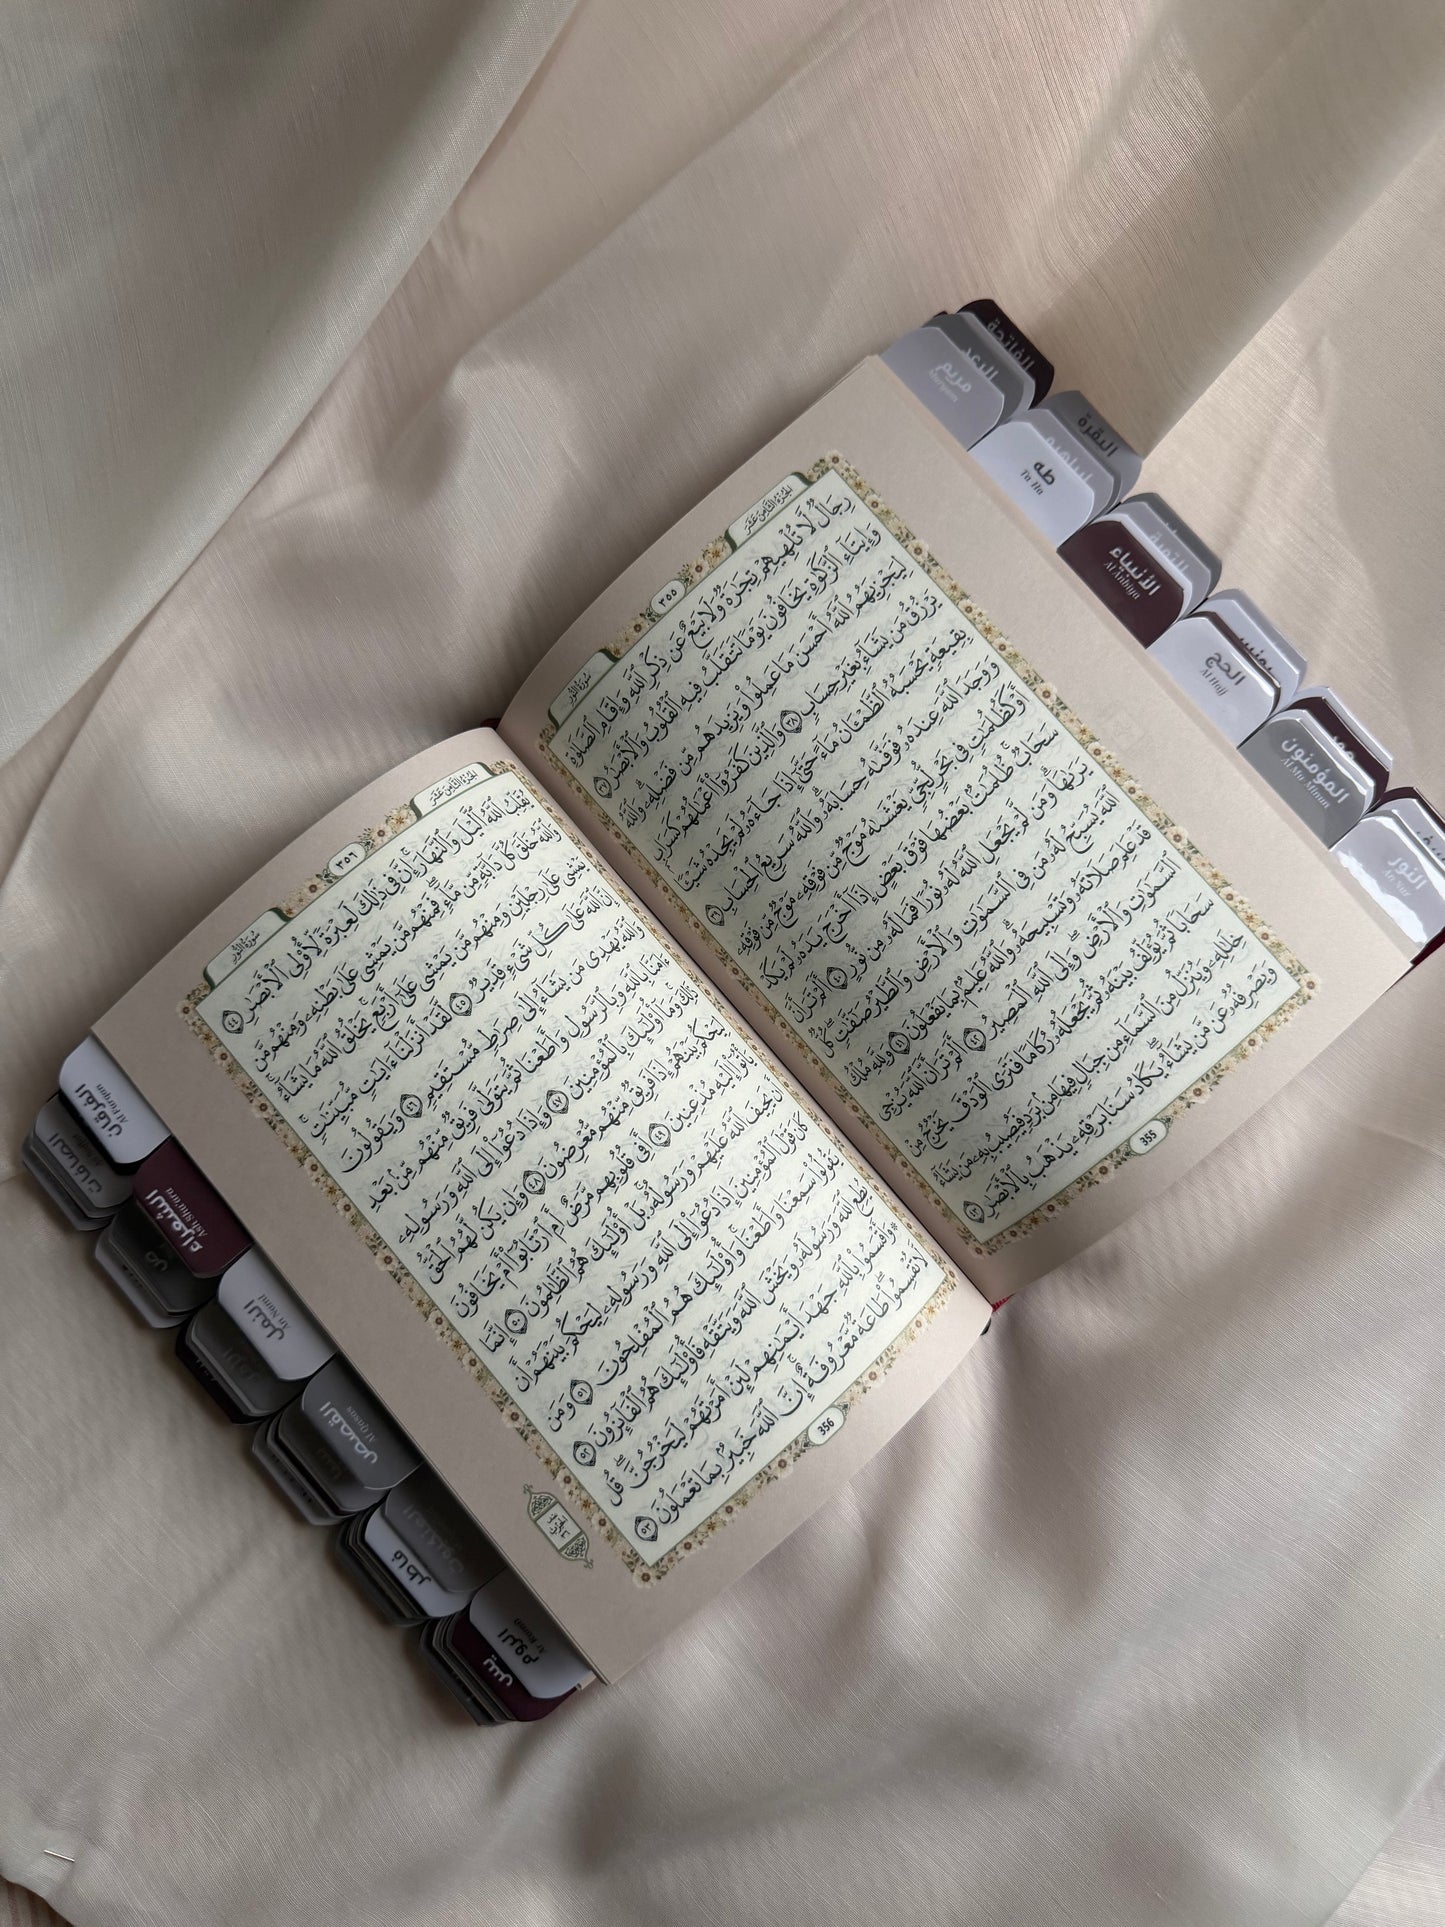 الجزء الثامن عشر
٣٥٥
سورة النور
رِجَالٌ لَّا تُلْهِيهِمْ تِجَٰرَةٌ وَلَا بَيْعٌ عَن ذِكْرِ ٱللَّهِ وَإِقَامِ ٱلصَّلَوٰةِ
وَإِيتَآءِ ٱلزَّكَوٰةِ يَخَافُونَ يَوْمًا تَتَقَلَّبُ فِيهِ ٱلْقُلُوبُ وَٱلْأَبْصَٰرُ ٣٧
لِيَجْزِيَهُمُ ٱللَّهُ أَحْسَنَ مَا عَمِلُوا۟ وَيَزِيدَهُم مِّن فَضْلِهِۦ ۗ وَٱللَّهُ
يَرْزُقُ مَن يَشَآءُ بِغَيْرِ حِسَابٍ ٣٨ وَٱلَّذِينَ كَفَرُوٓا۟ أَعْمَٰلُهُمْ كَسَرَابٍ
بِقِيعَةٍ يَحْسَبُهُ ٱلظَّمْـَٔانُ مَآءً حَتَّىٰٓ إِذَا جَآءَهُۥ لَمْ يَجِدْهُ شَيْـًٔا
وَوَجَدَ ٱللَّهَ عِندَهُۥ فَوَفَّىٰهُ حِسَابَهُۥ ۗ وَٱللَّهُ سَرِيعُ ٱلْحِسَابِ ٣٩
أَوْ كَظُلُمَٰتٍ فِى بَحْرٍ لُّجِّىٍّ يَغْشَىٰهُ مَوْجٌ مِّن فَوْقِهِۦ مَوْجٌ مِّن فَوْقِهِۦ
سَحَابٌ ۚ ظُلُمَٰتٌۢ بَعْضُهَا فَوْقَ بَعْضٍ إِذَآ أَخْرَجَ يَدَهُۥ لَمْ يَكَدْ
يَرَىٰهَا ۗ وَمَن لَّمْ يَجْعَلِ ٱللَّهُ لَهُۥ نُورًا فَمَا لَهُۥ مِن نُّورٍ ٤٠ أَلَمْ تَرَ أَنَّ
ٱللَّهَ يُسَبِّحُ لَهُۥ مَن فِى ٱلسَّمَٰوَٰتِ وَٱلْأَرْضِ وَٱلطَّيْرُ صَٰٓفَّٰتٍ ۖ كُلٌّ
قَدْ عَلِمَ صَلَاتَهُۥ وَتَسْبِيحَهُۥ ۗ وَٱللَّهُ عَلِيمٌۢ بِمَا يَفْعَلُونَ ٤١ وَلِلَّهِ مُلْكُ
ٱلسَّمَٰوَٰتِ وَٱلْأَرْضِ ۖ وَإِلَى ٱللَّهِ ٱلْمَصِيرُ ٤٢ أَلَمْ تَرَ أَنَّ ٱللَّهَ يُزْجِى
سَحَابًا ثُمَّ يُؤَلِّفُ بَيْنَهُۥ ثُمَّ يَجْعَلُهُۥ رُكَامًا فَتَرَى ٱلْوَدْقَ يَخْرُجُ مِنْ
خِلَٰلِهِۦ وَيُنَزِّلُ مِنَ ٱلسَّمَآءِ مِن جِبَالٍ فِيهَا مِنۢ بَرَدٍ فَيُصِيبُ بِهِۦ مَن يَشَآءُ
وَيَصْرِفُهُۥ عَن مَّن يَشَآءُ ۖ يَكَادُ سَنَا بَرْقِهِۦ يَذْهَبُ بِٱلْأَبْصَٰرِ ٤٣
355
الجزء الثامن عشر
٣٥٦
سورة النور
يُقَلِّبُ ٱللَّهُ ٱلَّيْلَ وَٱلنَّهَارَ ۚ إِنَّ فِى ذَٰلِكَ لَعِبْرَةً لِّأُو۟لِى ٱلْأَبْصَٰرِ ٤٤
وَٱللَّهُ خَلَقَ كُلَّ دَآبَّةٍ مِّن مَّآءٍ ۖ فَمِنْهُم مَّن يَمْشِى عَلَىٰ بَطْنِهِۦ وَمِنْهُم مَّن
يَمْشِى عَلَىٰ رِجْلَيْنِ وَمِنْهُم مَّن يَمْشِى عَلَىٰٓ أَرْبَعٍ ۚ يَخْلُقُ ٱللَّهُ مَا يَشَآءُ ۚ
إِنَّ ٱللَّهَ عَلَىٰ كُلِّ شَىْءٍ قَدِيرٌ ٤٥ لَّقَدْ أَنزَلْنَآ ءَايَٰتٍ مُّبَيِّنَٰتٍ ۚ
وَٱللَّهُ يَهْدِى مَن يَشَآءُ إِلَىٰ صِرَٰطٍ مُّسْتَقِيمٍ ٤٦ وَيَقُولُونَ
ءَامَنَّا بِٱللَّهِ وَبِٱلرَّسُولِ وَأَطَعْنَا ثُمَّ يَتَوَلَّىٰ فَرِيقٌ مِّنْهُم مِّنۢ بَعْدِ
ذَٰلِكَ ۚ وَمَآ أُو۟لَٰٓئِكَ بِٱلْمُؤْمِنِينَ ٤٧ وَإِذَا دُعُوٓا۟ إِلَى ٱللَّهِ وَرَسُولِهِۦ
لِيَحْكُمَ بَيْنَهُمْ إِذَا فَرِيقٌ مِّنْهُم مُّعْرِضُونَ ٤٨ وَإِن يَكُن لَّهُمُ ٱلْحَقُّ
يَأْتُوٓا۟ إِلَيْهِ مُذْعِنِينَ ٤٩ أَفِى قُلُوبِهِم مَّرَضٌ أَمِ ٱرْتَابُوٓا۟ أَمْ يَخَافُونَ
أَن يَحِيفَ ٱللَّهُ عَلَيْهِمْ وَرَسُولُهُۥ ۚ بَلْ أُو۟لَٰٓئِكَ هُمُ ٱلظَّٰلِمُونَ ٥٠ إِنَّمَا
كَانَ قَوْلَ ٱلْمُؤْمِنِينَ إِذَا دُعُوٓا۟ إِلَى ٱللَّهِ وَرَسُولِهِۦ لِيَحْكُمَ بَيْنَهُمْ أَن
يَقُولُوا۟ سَمِعْنَا وَأَطَعْنَا ۚ وَأُو۟لَٰٓئِكَ هُمُ ٱلْمُفْلِحُونَ ٥١ وَمَن
يُطِعِ ٱللَّهَ وَرَسُولَهُۥ وَيَخْشَ ٱللَّهَ وَيَتَّقْهِ فَأُو۟لَٰٓئِكَ هُمُ ٱلْفَآئِزُونَ ٥٢
۞ وَأَقْسَمُوا۟ بِٱللَّهِ جَهْدَ أَيْمَٰنِهِمْ لَئِنْ أَمَرْتَهُمْ لَيَخْرُجُنَّ ۖ قُل
لَّا تُقْسِمُوا۟ ۖ طَاعَةٌ مَّعْرُوفَةٌ ۚ إِنَّ ٱللَّهَ خَبِيرٌۢ بِمَا تَعْمَلُونَ ٥٣
356
الفاتحة
الرعد
مريم
Maryam
البقرة
إبراهيم
طه
Ta Ha
التوبة
الأنبياء
Al Anbiya
يونس
الحج
Al Hajj
هود
المؤمنون
Al Mu'minun
النور
An Nur
الفرقان
Al Furqan
الصافات
الشعراء
Ash Shu'ara
ص
النمل
An Naml
القصص
Al Qasas
سبأ
فاطر
الروم
Ar Rum
يس